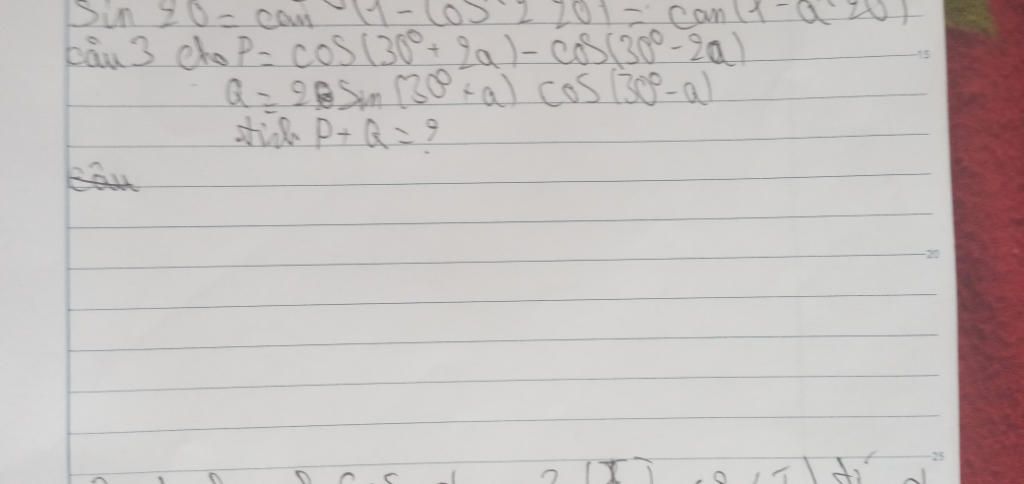 Sin 20 = căn (1 - cos^2 20) = căn (1 - a^2 20)
câu 3 cho P = cos(30° + 2a) - cos(30° - 2a)
Q = 2 Sin (30° + a) cos (30° - a)
tích P + Q = ?
câu
15
20
25